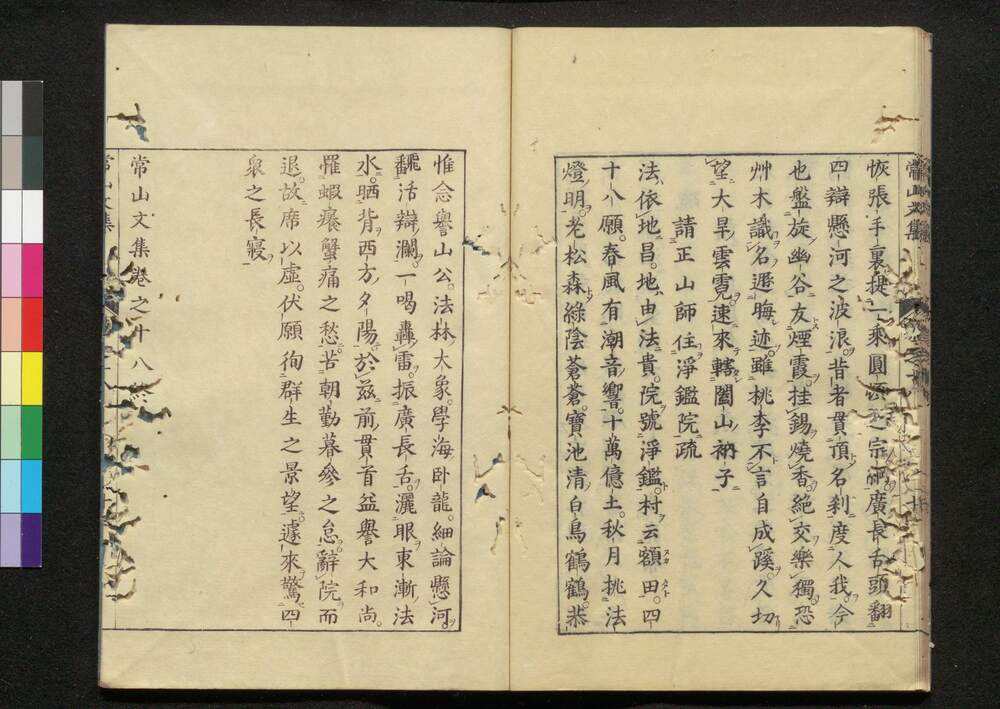 恢張手裏提一乘圓頓之宗綱廣長舌頭翻
四辯懸河之波浪昔者貫頂名刹度人我今
也盤旋幽谷友煙霞挂錫燒香絶交樂獨恐
艸木識名遯晦迹雖桃李不言自成蹊久切
望大旱雲霓速來轄闔山衲子
請正山師住淨鑑院疏
法依地昌地由法貴院號淨鑑村云額田四
十八願春風有潮音響十萬億土秋月挑法
燈明老松森綠陰蒼蒼寶池清白鳥鶴鶴恭
惟念譽山公法林大象學海臥龍細論懸河
飜活辯瀾一喝轟雷振廣長舌灑眼東漸法
水晒背西方夕陽於茲前貫首益譽大和尚
罹蝦癢蟹痛之愁苦朝勤暮參之怠辭院而
退故席以虛伏願徇群生之景望遽來驚四
衆之長寢
常山文集卷之十八終